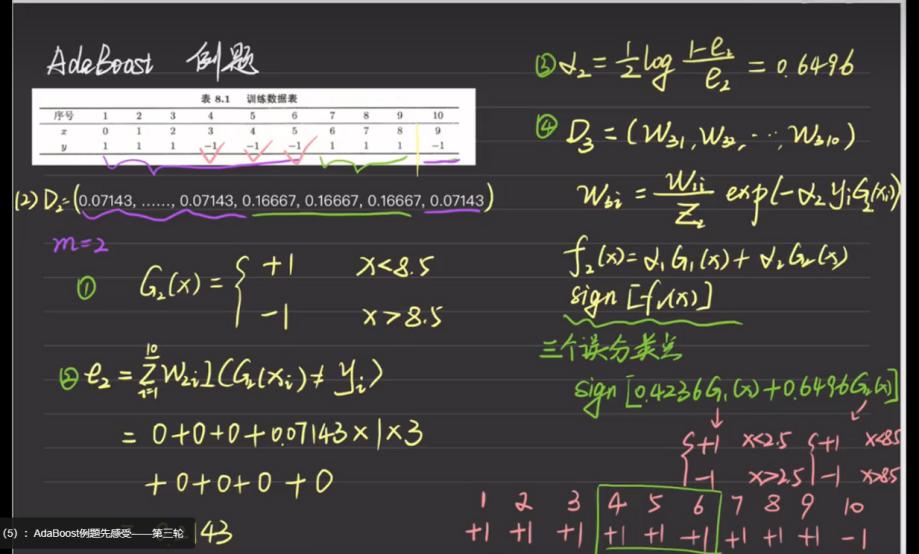 AdaBoost 例题
表 8.1 训练数据表
序号 1 2 3 4 5 6 7 8 9 10
x 0 1 2 3 4 5 6 7 8 9
y 1 1 1 -1 -1 -1 1 1 1 -1
(2) D₂=(0.07143, ……, 0.07143, 0.16667, 0.16667, 0.16667, 0.07143)
m=2
① G₂(x) = { +1 x<8.5
-1 x>8.5
② e₂ = Σ_{i=1}^{10} W₂ᵢ I(G₂(xᵢ) ≠ yᵢ)
= 0+0+0+0.07143×1×3
+0+0+0+0
143
(5) : AdaBoost例题先感受——第三轮
③ α₂ = 1/2 log (1-e₂)/e₂ = 0.6496
④ D₃ = (W₃₁, W₃₂, ⋯, W₃₁₀)
W₃ᵢ = W₂ᵢ/Z₂ exp(-α₂ yᵢ G₂(xᵢ))
f₂(x) = α₁G₁(x) + α₂G₂(x)
sign [f₂(x)]
三个误分类点
sign [0.4236G₁(x)+0.6496G₂(x)]
{ +1 x<2.5 { +1 x<8.5
-1 x>2.5 -1 x>8.5
1 2 3 4 5 6 7 8 9 10
+1 +1 +1 +1 +1 +1 +1 +1 +1 -1